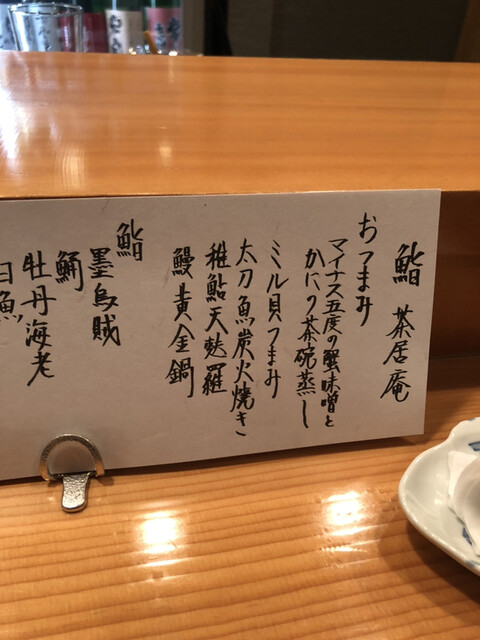 鮨 茶居庵
おつまみ
マイナス五度の蟹味噌と
かにの茶碗蒸し
ミル貝つまみ
太刀魚炭火焼き
稚鮎天麩羅
鰻黄金鍋
鮨
墨烏賊
鯒
牡丹海老
白魚